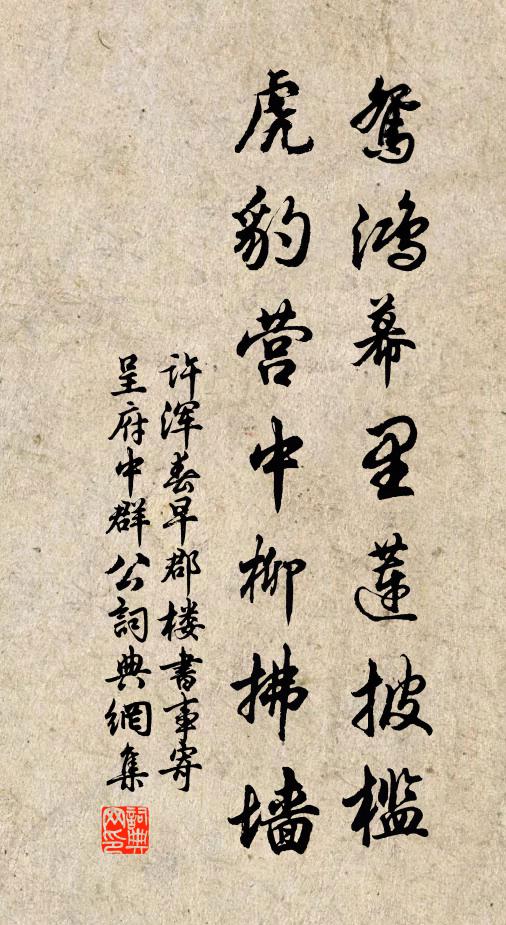 鸳鸿幕里莲披槛
虎豹营中柳拂墙
许浑春早郡楼书事寄
呈府中群公词典网集
词典网印